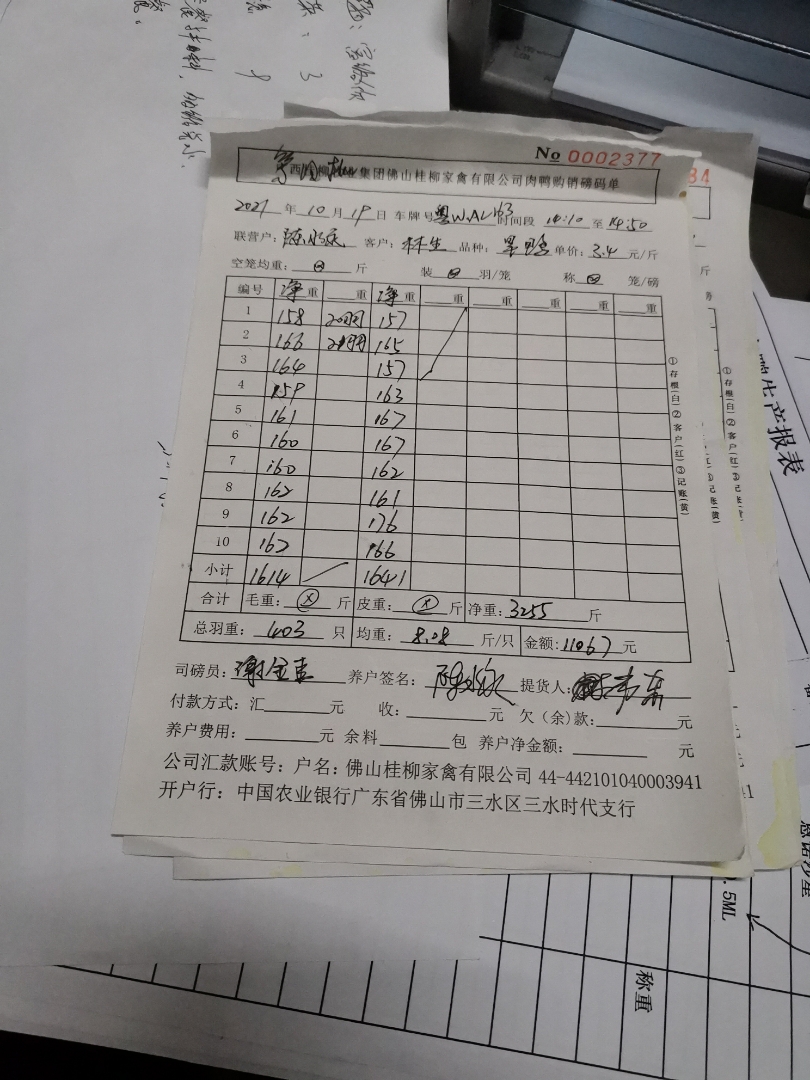 No 0002377
集团佛山桂柳家禽有限公司肉鸭购销磅码单
2021 年 10 月 19 日 车牌号 粤W 时间段 14:10 至 14:50
联营户： 客户：林生 品种： 单价：3.4 元/斤
空笼均重： 斤 装 羽/笼 称 笼/磅
编号 净重 重 净重 重 重 重 重 重
1 158 20羽 157
2 166 165
3 164 157
4 159 163
5 161 167
6 160 167
7 160 162
8 162 161
9 162 176
10 162 166
小计 1614 1641
合计 毛重： 斤 皮重： 斤 净重：3255 斤
总羽重：403 只 均重：8.08 斤/只 金额：11067 元
司磅员： 养户签名： 提货人：
付款方式：汇 元 收： 元 欠（余）款： 元
养户费用： 元 余料 包 养户净金额： 元
公司汇款账号：户名：佛山桂柳家禽有限公司 44-442101040003941
开户行：中国农业银行广东省佛山市三水区三水时代支行
①存根(白)②客户(红)③记账(黄)
①存根(白)②客户(红)
34
斤
生产报表
.5ML
称重